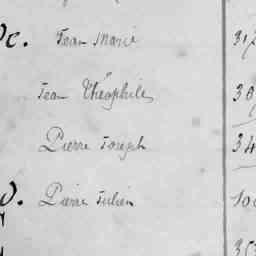 c. Jean Marie 31
Jean Théophile 30
Pierre Joseph 34
Pierre Julien 10